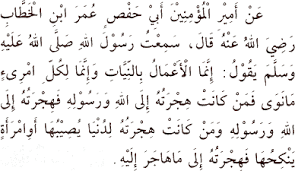 عَنْ أَمِيْرِ الْمُؤْمِنِيْنَ أَبِيْ حَفْصٍ عُمَرَ ابْنِ الْخَطَّابِ
رَضِيَ اللهُ عَنْهُ قَالَ، سَمِعْتُ رَسُوْلَ اللهِ صَلَّى اللهُ عَلَيْهِ
وَسَلَّمَ يَقُوْلُ : إِنَّمَا الْأَعْمَالُ بِالنِّيَّاتِ وَإِنَّمَا لِكُلِّ امْرِئٍ
مَانَوَى فَمَنْ كَانَتْ هِجْرَتُهُ إِلَى اللهِ وَرَسُوْلِهِ فَهِجْرَتُهُ إِلَى
اللهِ وَرَسُوْلِهِ وَمَنْ كَانَتْ هِجْرَتُهُ لِدُنْيَا يُصِيْبُهَا أَوِامْرَأَةٍ
يَنْكِحُهَا فَهِجْرَتُهُ إِلَى مَاهَاجَرَ إِلَيْهِ.